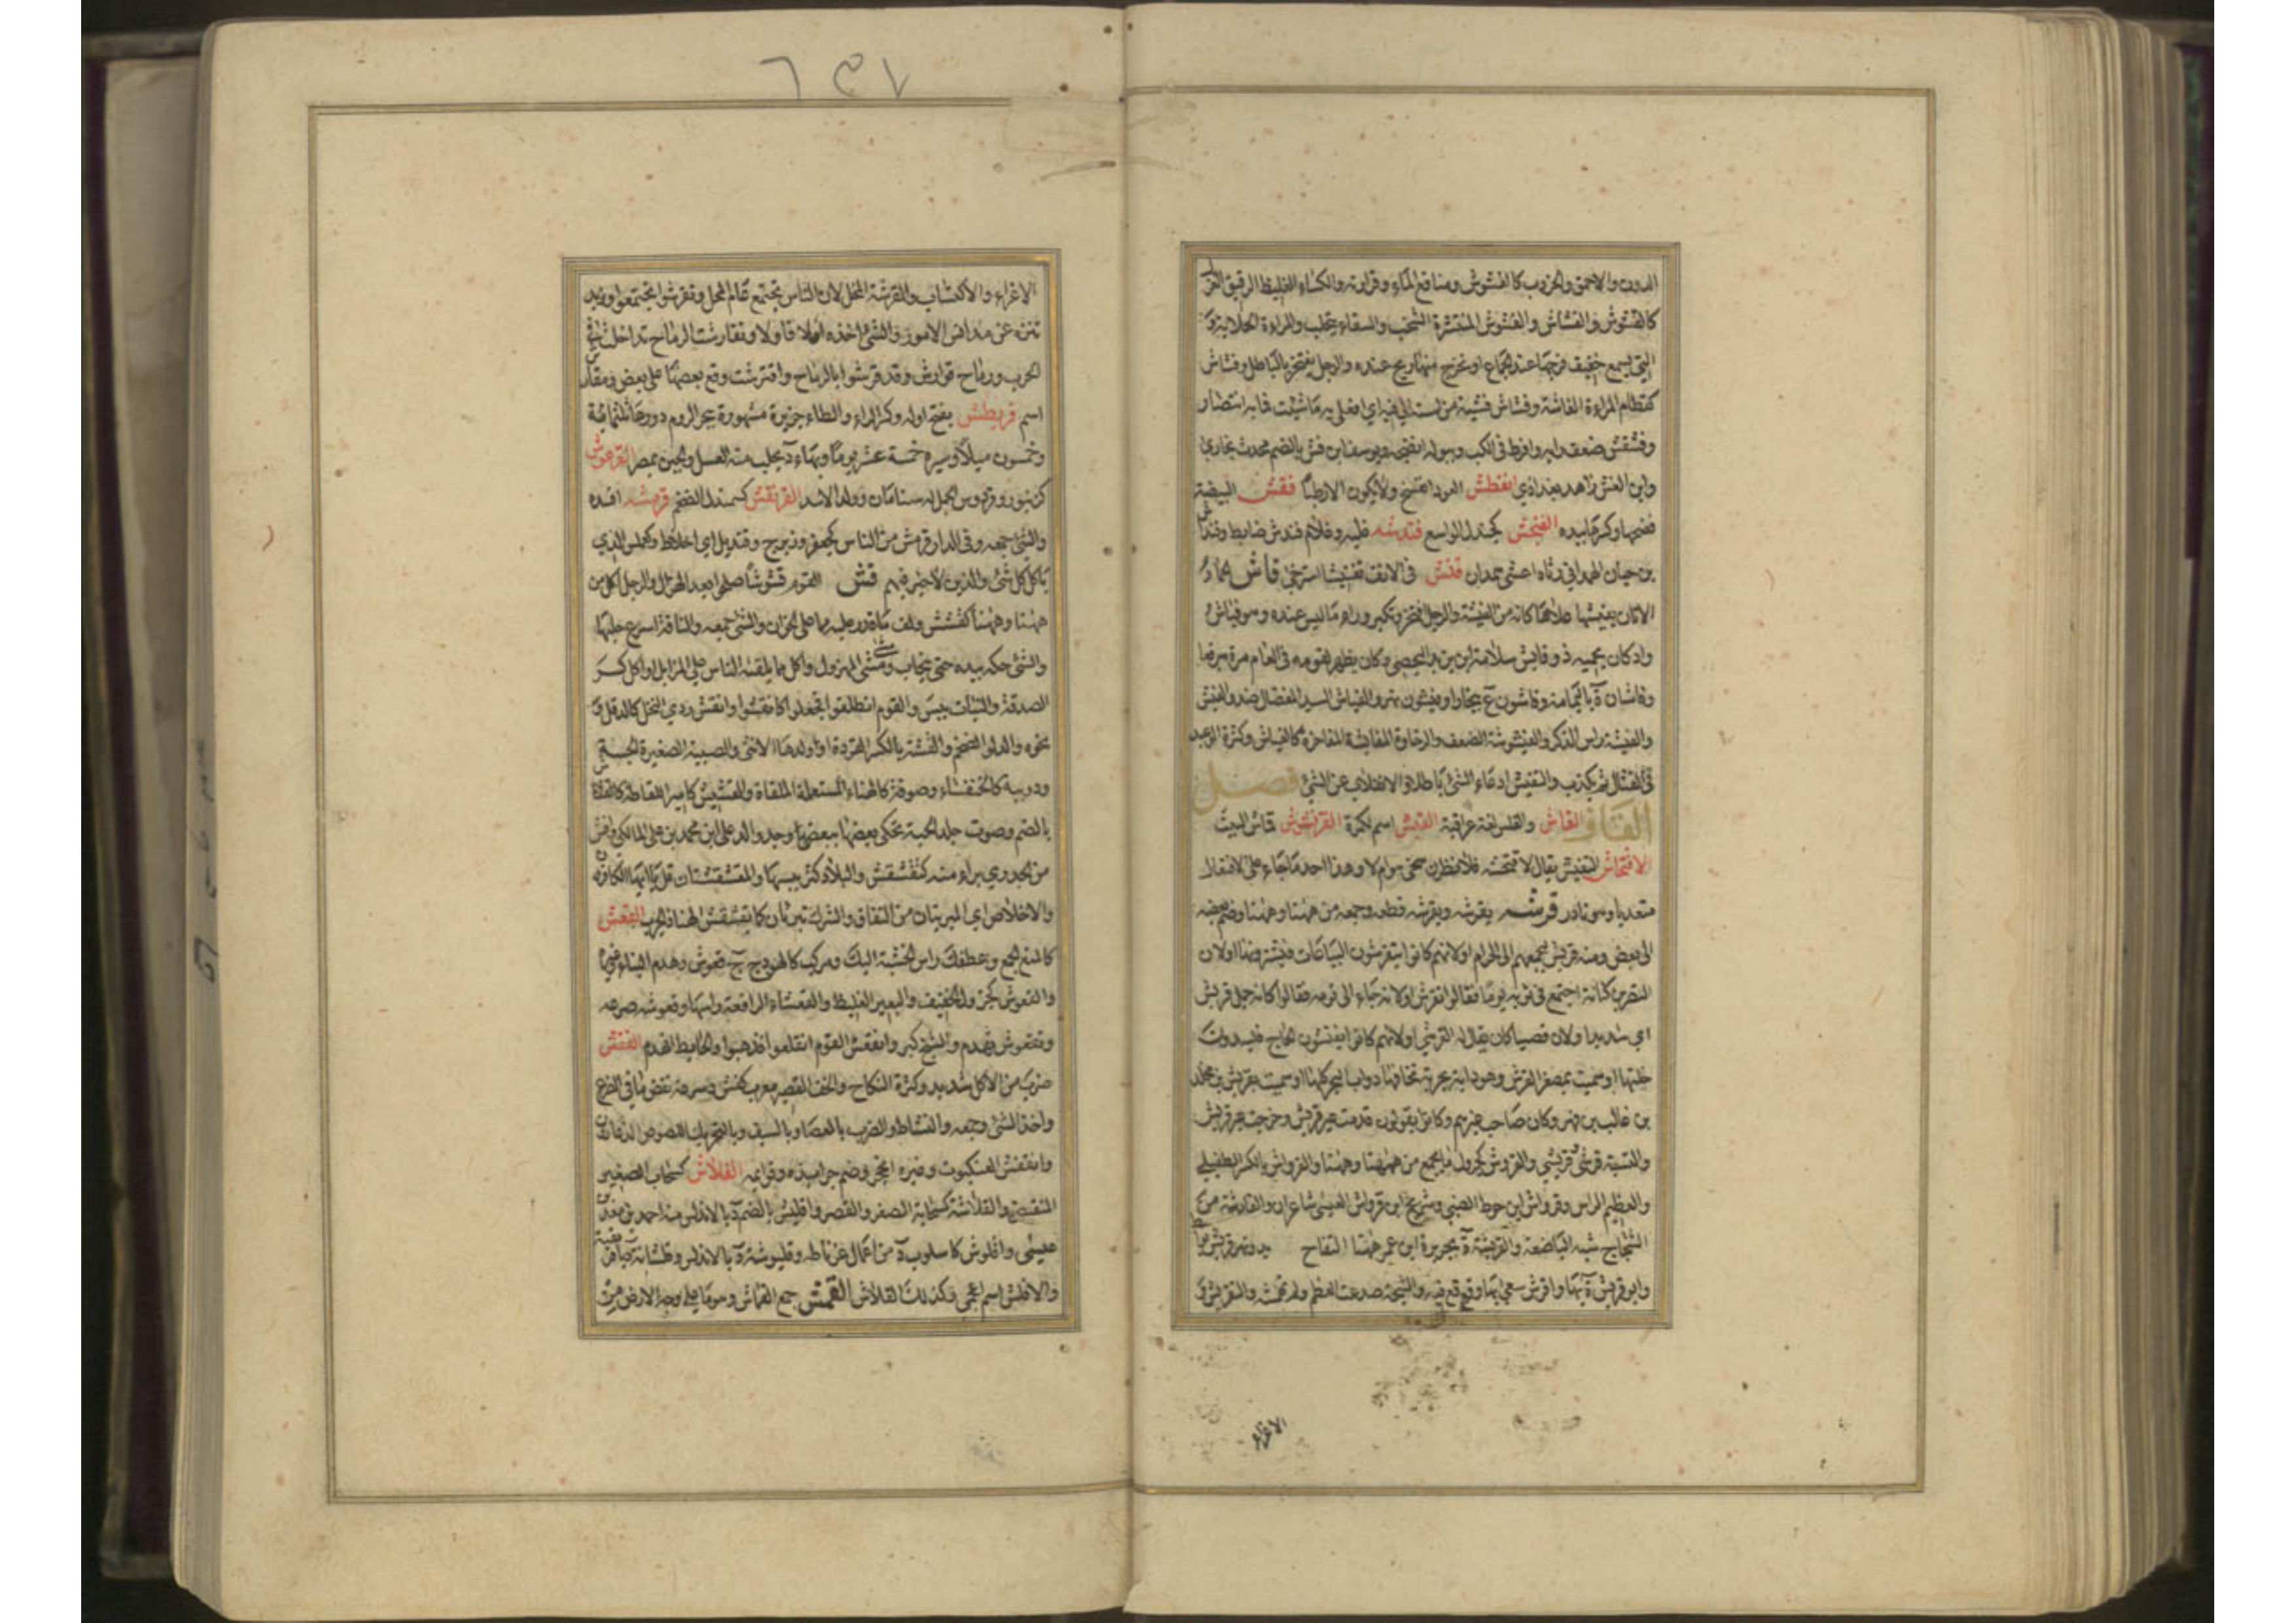 الدون والاحمق والخروب كالفشوش ومناقع الماء وقرارته والكساء الغليظ الرقيق الغزل
كالفشوش والفشاش والفشوش المنتشرة الشخب والسقاء يتحلب والمراة الحلابة و
التي يسمع خقيق فرجها عند الجماع او تخرج منها ريح عنده والرجل يفتخر بالباطل وفشاش
كقطام المراة الفاشة وفشاش فشيه من استه الى فيه اي افعلي به ما شئت فما به انتصار
وفشفش ضعف رايه وافرط في الكذب وببوله انضحه ويوسف ابن فش بالضم محدث بخاري
وابن الفش زاهد بغدادي انفطش العود انفسخ ولا يكون الا رطبا فقش البيضة
فضخها وكسرها بيده الفنجش كجندل الواسع فندشه غلبه وغلام فندش ضابط وفندش
بن حيان الهمداني رثاه اعشى همدان فنش في الامر تفنيشا استرخى فاش الحمار
الاتان يفيشها علاها كانه من الفيشة والرجل افتخر وتكبر وراى ما ليس عنده وهو فياش
واد كان يحميه ذو فائش سلامة ابن يزيد اليحصبي وكان يظهر لقومه في العام مرة مبرقعا
وفاشان ة باليمامة وفاشون ع ببخارا وفيشون نهر والفياش السيد المفضال ضد والفيش
والفيشة راس الذكر والفيشوشة الضعف والرخاوة المفايشة المفاخرة كالفياش وكثرة الوعيد
في القتال ثم يكذب والتفيش ادعاء الشئ باطلا والانقلاب عن الشئ فصل
القاف القاش والقلس لغة عراقية القبش اسم لكرة القربشوش قماش البيت
الاقتحاش التفتيش يقال لاقتحشنه فلانظرن سخي هو ام لا وهذا احد ما جاء على الافتعال
متعديا وهو نادر قرشه يقرشه ويقرشه قطعه وجمعه من ههنا وههنا وضم بعضه
الى بعض ومنه قريش لتجمعهم الى الحرام او لانهم كانوا يتقرشون البياعات فيشترونها او لان
النضر بن كنانة اجتمع في ثوبه يوما فقالوا تقرش او لانه جاء الى قومه فقالوا كانه جمل قريش
اي شديد او لان قصيا كان يقال له القرشي او لانهم كانوا يفتشون الحاج فيسدون
خلتها او سميت بمصغر القرش وهو دابة بحرية تخافها دواب البحر كلها او سميت بقريش بن مخلد
بن غالب بن فهر وكان صاحب عيرهم وكانوا يقولون قدمت عير قريش وخرجت عير قريش
والنسبة قرشي وقريشي والقروش كجرول ما يجمع من ههنا وههنا والقرواش بالكسر الطفيلي
والعظيم الراس وقرواش ابن حوط الضبي وشريح ابن قرواش العبسي شاعران والقارشة من
الشجاج شبه الباضعة والقريشية ة بجزيرة ابن عمر منها التفاح
وابو قريش ة بها واقرش سعى بها ووقع فيه والشجة صدعت العظم ولم تهشمه والتقريش
الاغراء
٦٣٧
الاغراء والاكتساب والمقرشة المحل لان الناس تجتمع عام المحل وتقرشوا تجمعوا وزيد
تنزه عن مدانس الامور والشئ اخذه اولا فاولا وتقارشت الرماح تداخلت في
الحرب ورماح قوارش وقد قرشوا بالرماح واقترشت وقع بعضها على بعض ومقارش
اسم قريطش بفتح اوله وكسر الراء والطاء جزيرة مشهورة ببحر الروم دورها ثلثمائة
وخمسون ميلا ومسيره خمسة عشر يوما وبها ة يجلب منه العسل والجبن بمصر القرعوش
كزنبور وفردوس الجمل له سنامان وولد الاسد القرنفش كسمندل الضخم قرمشه افسده
والشئ جمعه وفي الدار قرمش من الناس كجعفر وزبرج وقنديل اي اخلاط وكعملس الذي
ياكل كل شئ والذين لا خير فيهم قش القوم قشوشا صلحوا بعد الهزال والرجل اكل من
ههنا وههنا كقشش ولف ما قدر عليه مما على الخوان والشئ جمعه والناقة اسرع حلبها
والشئ حكه بيده حتى يتحات ومشى مشي المهزول واكل مما يلقيه الناس على المزابل او اكل كسر
الصدقة والنبات يبس والقوم انطلقوا فجفلوا كانقشوا وانقش ردي النخل كالدقل و
نحوه والدلو الضخم والقشة بالكسر القردة او ولدها الانثى والصبية الصغيرة الجثة
ودويبة كالخنفساء وصوفة كالهناء المستعملة الملقاة والقشيش كامير اللقاطة كالقشاش
بالضم وصوت جلد الحية تحكي بعضها ببعض وجد والد علي ابن محمد بن علي المالكي واقش
من الجدري برا منه كتقشقش والبلاد كثر يبسها والمقشقشتان قل يا ايها الكافرون
والاخلاص اي المبريتان من النفاق والشرك تبرئان كما يقشقش الهناء الجرب القعش
كالمنع الجمع وعطفك راس الخشبة اليك ومركب كالهودج ج قعوش وهدم البناء وغيره
والقعوش كجرول الخفيف والبعير الغليظ والقعشاء الرافعة راسها وقعوشه صرعه
وتقعوش تهدم والشيخ كبر وانقعش القوم انقلعوا فذهبوا والحائط انهدم القفش
ضرب من الاكل شديد وكثرة النكاح والخف القصير معرب كفش وسرعة نفض ما في الضرع
واخذ الشئ وجمعه والنشاط والضرب بالعصا وبالسيف وبالتحريك اللصوص الدعارون
وانقفش العنكبوت وغيره انجحر وضم جراميزه وقوايمه القلاش كسحاب الصغير
المنقبض والقلاشة كسحابة الصغر والقصر واقليش بالضم ة بالاندلس منه احمد بن معد بن
عيسى واقلوش كاسلوب ة من اعمال غرناطه وقليوشة ة بالاندلس وقلشانة ة بافريقية
والاقلش اسم اعجمي وكذلك القلاش القمش جمع القماش وهو ما على وجه الارض من